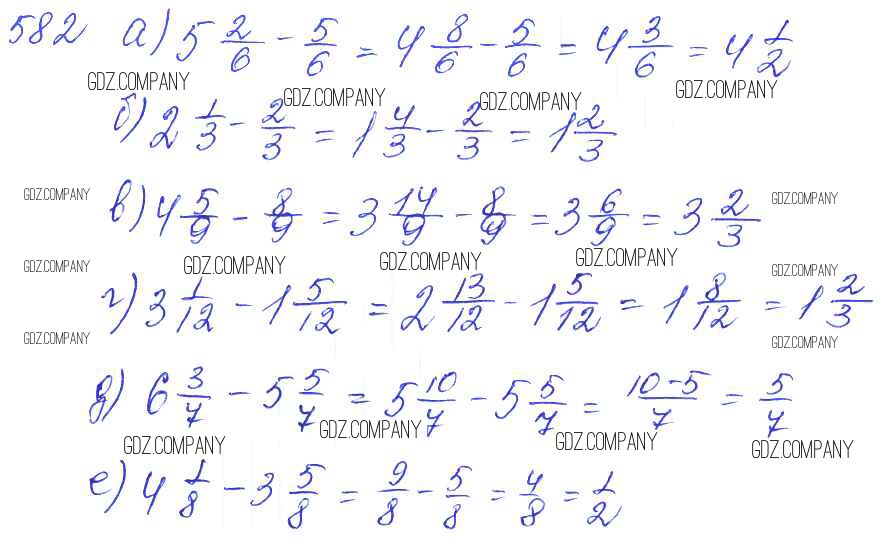 582 а) 5 2/6 - 5/6 = 4 8/6 - 5/6 = 4 3/6 = 4 1/2
GDZ.COMPANY GDZ.COMPANY GDZ.COMPANY GDZ.COMPANY
б) 2 1/3 - 2/3 = 1 4/3 - 2/3 = 1 2/3
GDZ.COMPANY GDZ.COMPANY
в) 4 5/9 - 8/9 = 3 14/9 - 8/9 = 3 6/9 = 3 2/3
GDZ.COMPANY GDZ.COMPANY GDZ.COMPANY GDZ.COMPANY GDZ.COMPANY
г) 3 1/12 - 1 5/12 = 2 13/12 - 1 5/12 = 1 8/12 = 1 2/3
GDZ.COMPANY GDZ.COMPANY
д) 6 3/7 - 5 5/7 = 5 10/7 - 5 5/7 = 10-5/7 = 5/7
GDZ.COMPANY GDZ.COMPANY GDZ.COMPANY GDZ.COMPANY
е) 4 1/8 - 3 5/8 = 9/8 - 5/8 = 4/8 = 1/2